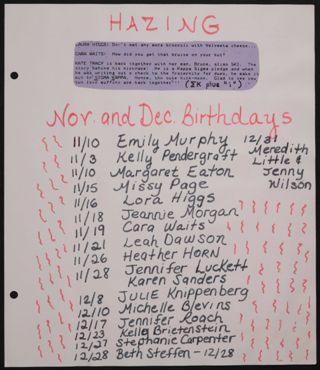 HAZING
LAURA HIGGS: Don't eat any more broccoli with Velveeta cheese.
CARA WAITS: How did you get that bruise on your butt?
KATE TRACY is back together with her man, Bruce, alias SKI. The
story behind his nickname: He is a Kappa Sigma pledge and when
he was writing out a check to the fraternity for dues, he made it
out to SIGMA KAPPA. Hence, the cute nick-name. Glad to see you
two back together!!! (ΣK plus ";")
Nov. and Dec. Birthdays
11/10 Emily Murphy 12/31
11/3 Kelly Pendergraft Meredith
11/10 Margaret Eaton Little &
11/15 Missy Page Jenny
11/16 Lora Higgs Wilson
11/18 Jeannie Morgan
11/19 Cara Waits
11/21 Leah Dawson
11/26 Heather HORN
11/28 Jennifer Luckett
Karen Sanders
12/8 JULIE Knippenberg
12/10 Michelle Blevins
12/17 Jennifer Roach
12/23 Kelly Brietenstein
12/27 Stephanie Carpenter
12/28 Beth Steffen - 12/28